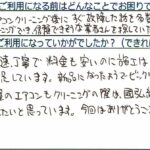 ご利用になる前はどんなことでお困りで
エアコンクリーニング後にすぐ故障した話を
クリーニングでき、信頼できそうな業者さんを探していた
ご利用になっていかがでしたか？（できれ
丁寧で料金も安いのに施工は
足しています。新品になったようでビック
のエアコンもクリーニングの際は、
たいと思っています。今回はありがとうござ